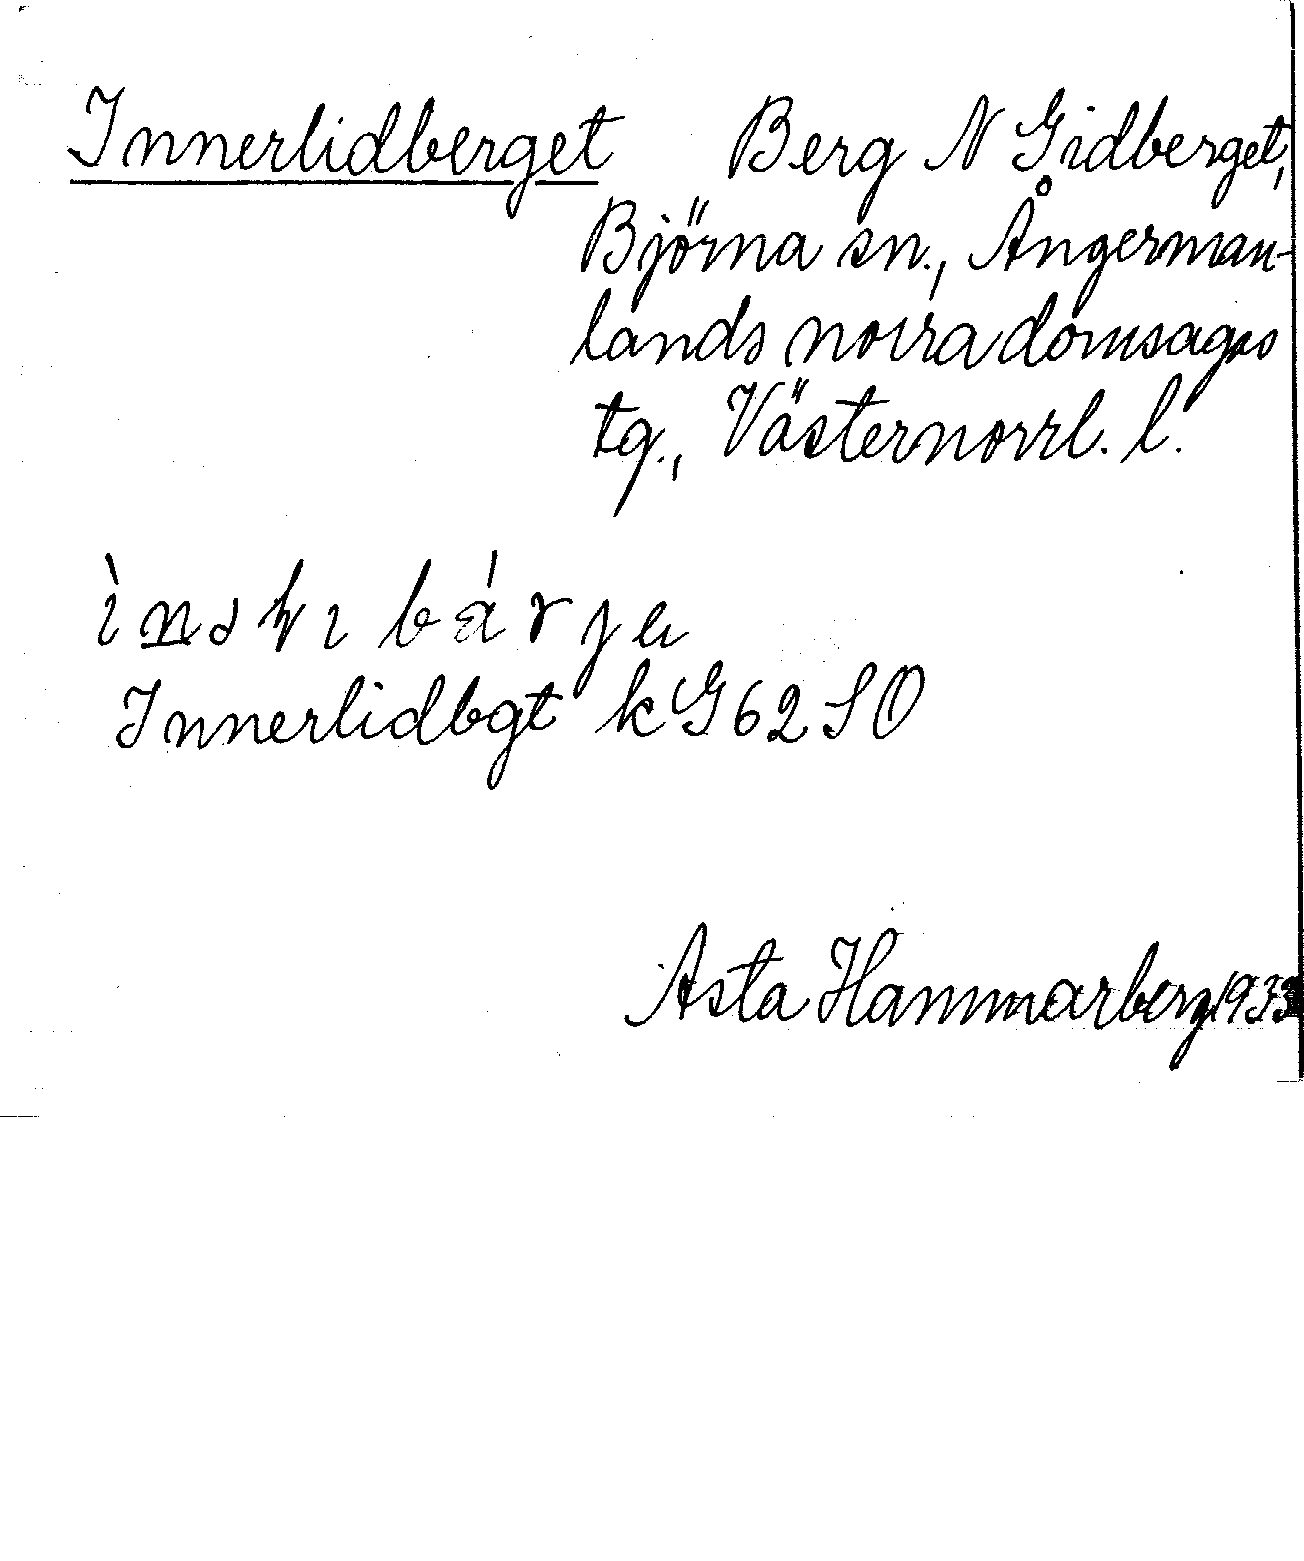 Innerlidberget Berg N Gidberget,
Björna sn., Ångerman-
lands norra domsagas
tg., Västernorrl. l.
Innerlidbgt k G 62 SO
Asta Hammarberg 1933